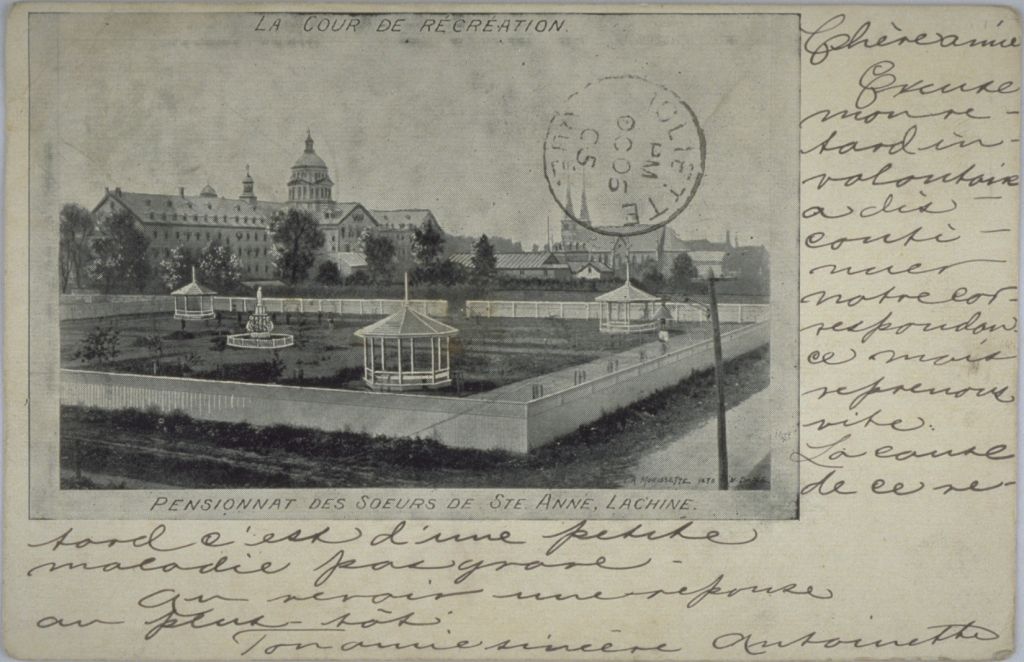 LA COUR DE RÉCRÉATION.
JOLIETTE
PM
OC 05
05
QUE.
PENSIONNAT DES SOEURS DE STE ANNE, LACHINE.
Chère amie
Excuse
mon re-
tard in-
volontaire
a dis-
conti-
nuer
notre cor-
respondan
ce mais
reprenons
vite.
La cause
de ce re-
tard c'est d'une petite
maladie pas grave.
au revoir une reponse
au plus-tôt
Ton amie sincère Antoinette